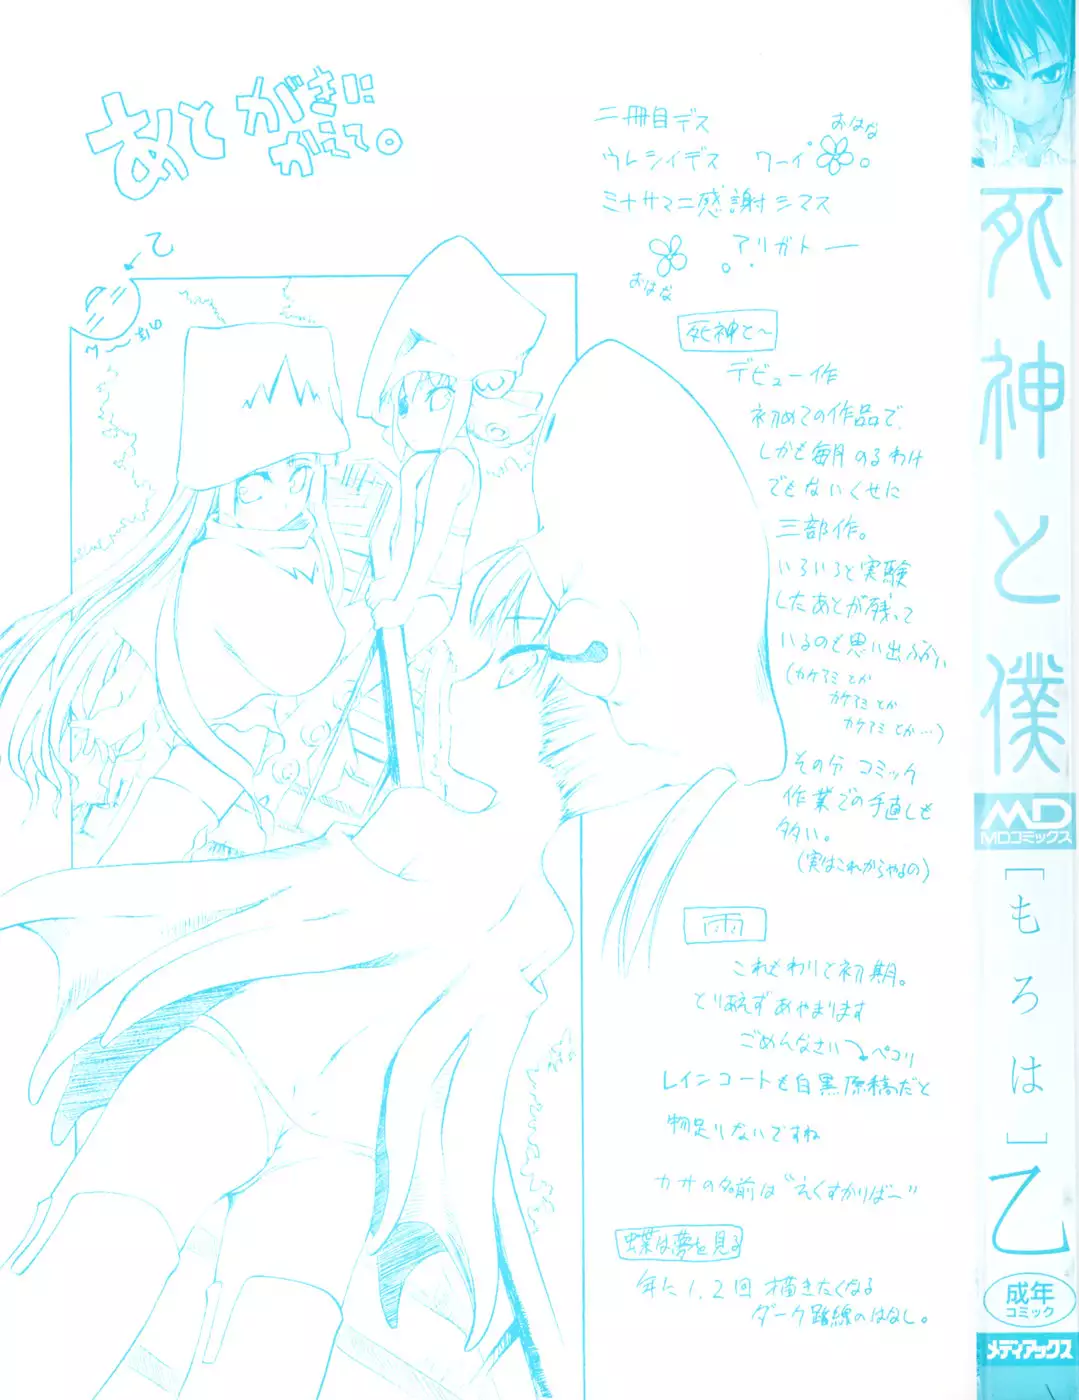 あとがきに
かえて。
乙
二冊目デス
おはな
ウレシイデス ワーイ 。
ミナサマニ感謝シマス
アリガトー
おはな
死神と〜
デビュー作
初めての作品で、
しかも毎月のるわけ
でもないくせに
三部作。
いろいろと実験
したあとが残って
いるのも思い出ぶかい
(カケアミとか
カケアミとか
カケアミとか…)
その分コミック
作業での手直しも
多い。
(実はこれからやるの)
雨
これもわりと初期。
とりあえずあやまります
ごめんなさい ペコリ
レインコートも白黒原稿だと
物足りないですね
カサの名前は"えくすかりばー"
蝶は夢を見る
年に1,2回 描きたくなる
ダーク路線のはなし。
死神と僕
MD
MDコミックス
[もろは]乙
成年
コミック
メディアックス